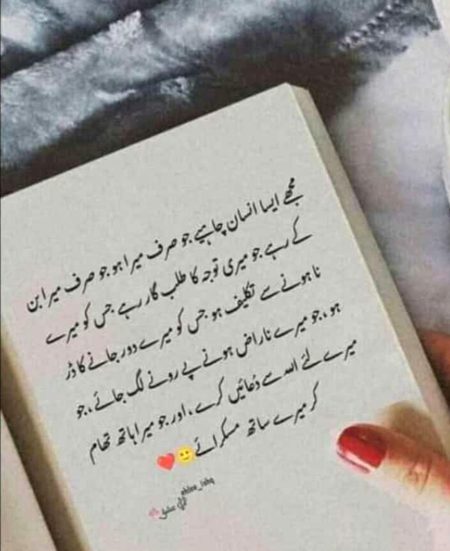 مجھے ایسا انسان چاہیے جو صرف میرا ہو جو صرف میرا بن
کے رہے جو میری توجہ کا طلب گار رہے جس کو میرے
نا ہونے سے تکلیف ہو جس کو میرے دور جانے کا ڈر
ہو، جو میرے ناراض ہونے پے رونے لگ جائے، جو
میرے لئے اللہ سے دُعائیں کرے، اور جو میرا ہاتھ تھام
کر میرے ساتھ مسکرائے🙂❤️